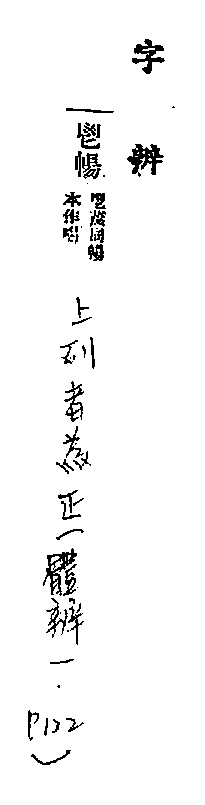 字辨
鬯暢
鬯茂同暢
本作
上列者為正(體辨一.P122)